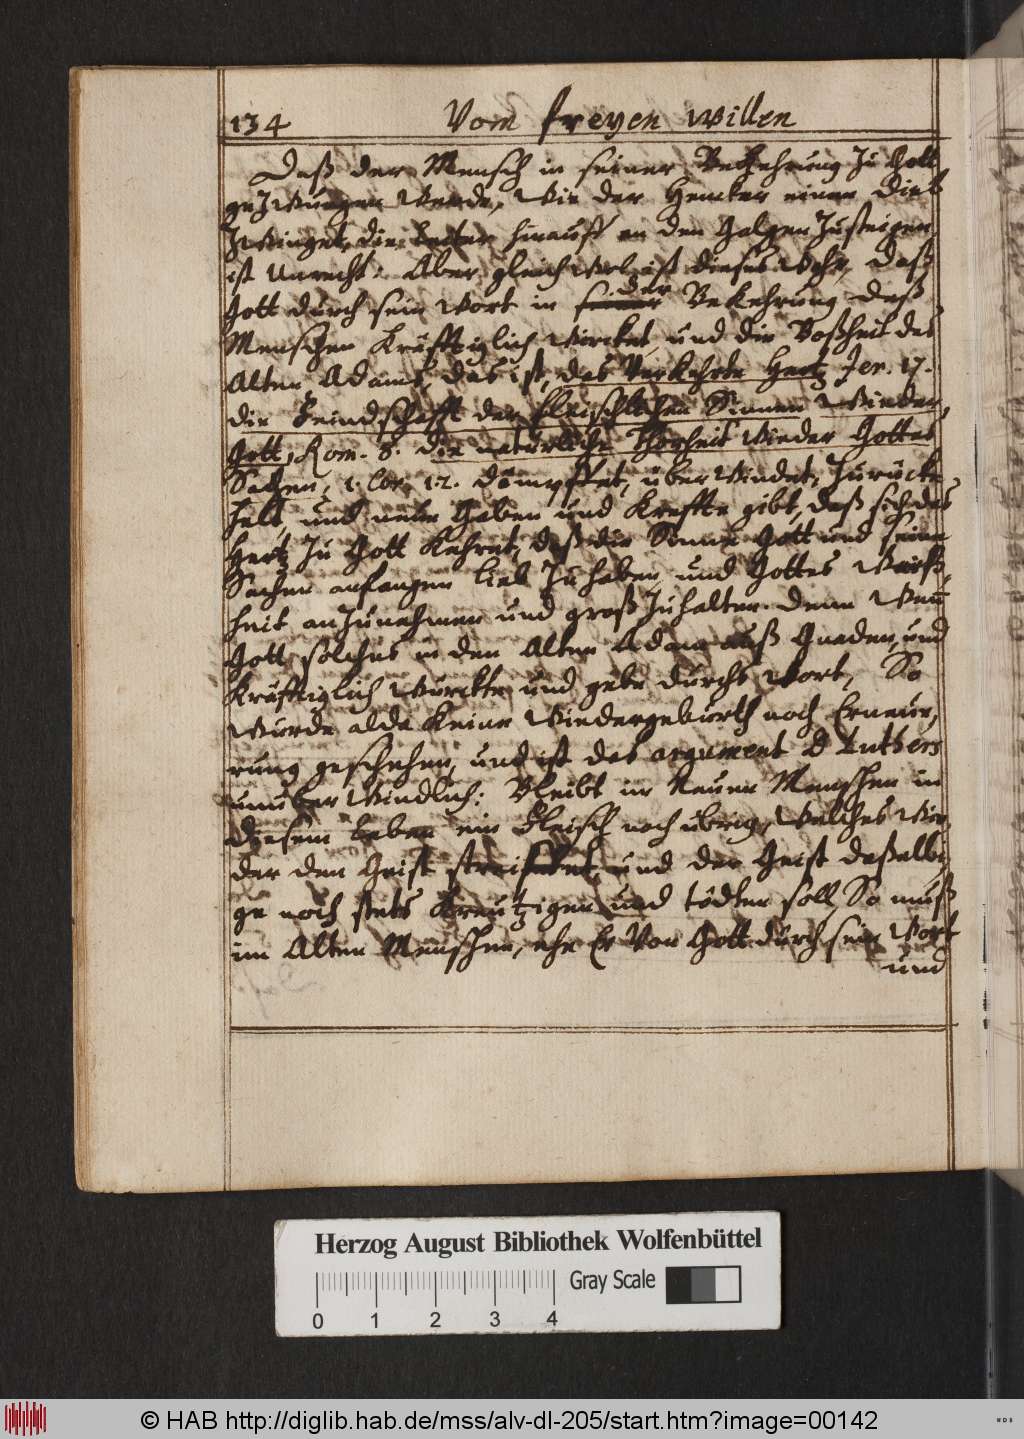 134 Vom freyen willen
Daß der Mensch in seiner Bekehrung zu Gott
gezwungen werde, wie der Hencker einen Dieb
zwinget, die Leiter hinauff an den Galgen zusteigen
ist unrecht. Aber gleichwol ist dieses wahr, daß
der
Gott durch sein wort in seiner Bekehrung deß
Menschen kräfftiglich wircket, und die Boßheit des
Alten Adams, das ist, das verkehrte Hertz Jer. 17.
die Feindschafft der fleischlichen Sinnen wieder
Gott, Rom. 8. die natürliche Thorheit wieder Gottes
Sachen, 1. Cor. 12. dämpffet, überwindet, zurücke
helt, und neue Gaben und Kreffte gibt, daß sich das
Hertz zu Gott kehret, daß die Sinne Gott und seine
Sachen anfangen lieb zu haben, und Gottes Weiß,
heit anzunehmen und groß zuhalten. Denn wen̄
Gott solches in den Alten Adam auß Gnaden, und
kräfftiglich würckte und gebe durchs wort, So
wurde alda keine wiedergeburth noch Erneue,
rung geschehen, und ist das argument D Luthers
unüberwindlich: Bleibt im neuen Menschen in
diesem Leben ein Fleisch noch übrig, welches wie,
der den Geist streitet, und der Geist daßelbi,
ge noch stets Kreutzigen und tödten soll, So muß
im Alten Menschen, ehe Er von Gott durch sein Wort
und
Herzog August Bibliothek Wolfenbüttel
Gray Scale
0 1 2 3 4
© HAB http://diglib.hab.de/mss/alv-dl-205/start.htm?image=00142